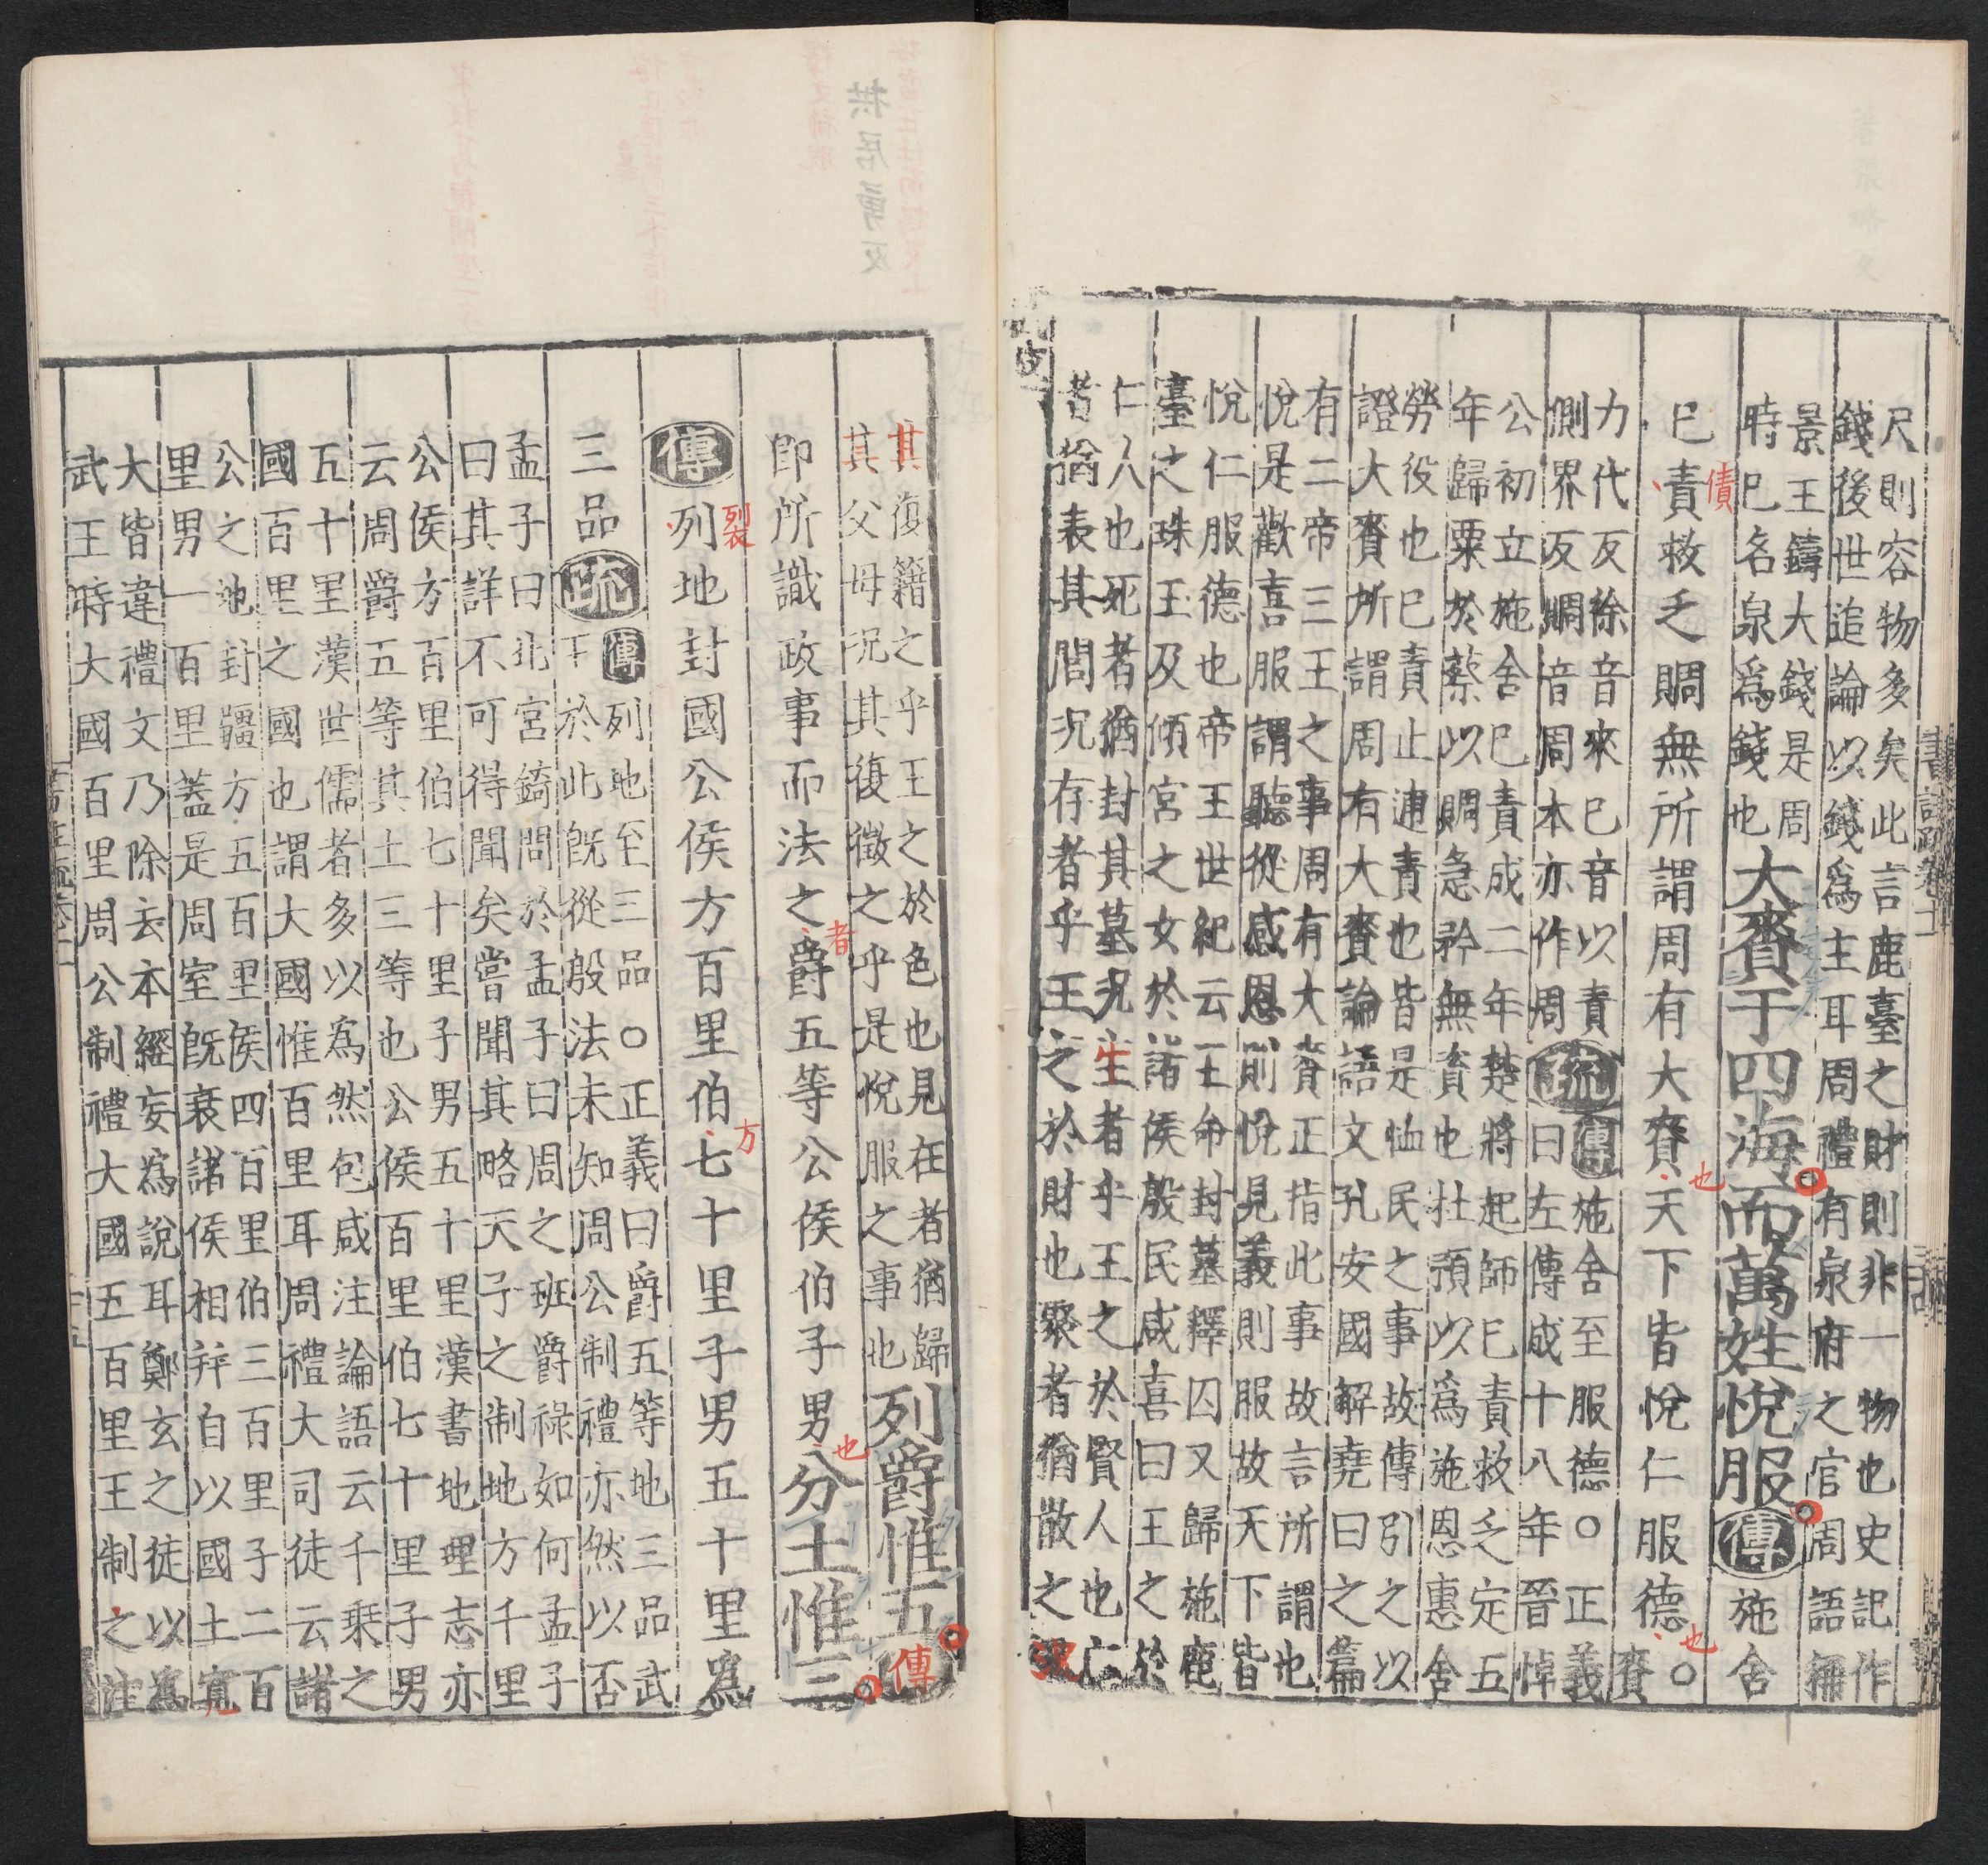 尺則容物多矣此言鹿臺之財則非一物也史記作
錢後世追論以錢爲主耳周禮有泉府之官周語稱
景王鑄大錢是周
時已名泉爲錢也
大賚于四海而萬姓悅服傳施舍
債
已責救乏賙無所謂周有大賚天下皆悅仁服德○賚
也
也
力代反徐音來已音以責
側界反賙音周本亦作周
疏
傳施舍至服德○正義
曰左傳成十八年晉悼
公初立施舍已責成二年楚將起師已責救乏定五
年歸粟於蔡以賙急矜無資也杜預以爲施恩惠舍
勞役也已責止逋責也皆是恤民之事故傳引之以
證大賚所謂周有大賚論語文孔安國解堯曰之篇
有二帝三王之事周有大賚正指此事故言所謂也
悅是歡喜服謂聽從感恩則悅見義則服故天下皆
悅仁服德也帝王世紀云王命封墓釋囚又歸施鹿
臺之珠玉及傾宮之女於諸侯殷民咸喜曰王之於
仁人也死者猶封其墓況生者乎王之於賢人也亡
者猶表其閭況存者乎王之於財也聚者猶散之況
其復籍之乎王之於色也見在者猶歸
其父母況其復徵之乎是悅服之事也
列爵惟五傳
者
也
即所識政事而法之爵五等公侯伯子男分土惟三
裂
方
傳列地封國公侯方百里伯七十里子男五十里爲
三品疏
傳列地至三品○正義曰爵五等地三品武
下於此既從殷法未知周公制禮亦然以否
孟子曰北宮錡問於孟子曰周之班爵祿如何孟子
曰其詳不可得聞矣嘗聞其略天子之制地方千里
公侯方百里伯七十里子男五十里漢書地理志亦
云周爵五等其土三等也公侯百里伯七十里子男
五十里漢世儒者多以爲然包咸注論語云千乘之
國百里之國也謂大國惟百里耳周禮大司徒云諸
公之地封疆方五百里侯四百里伯三百里子二百
里男一百里蓋是周室既衰諸侯相幷自以國土寬
大皆違禮文乃除去本經妄爲說耳鄭玄之徒以爲
武王時大國百里周公制禮大國五百里王制之注